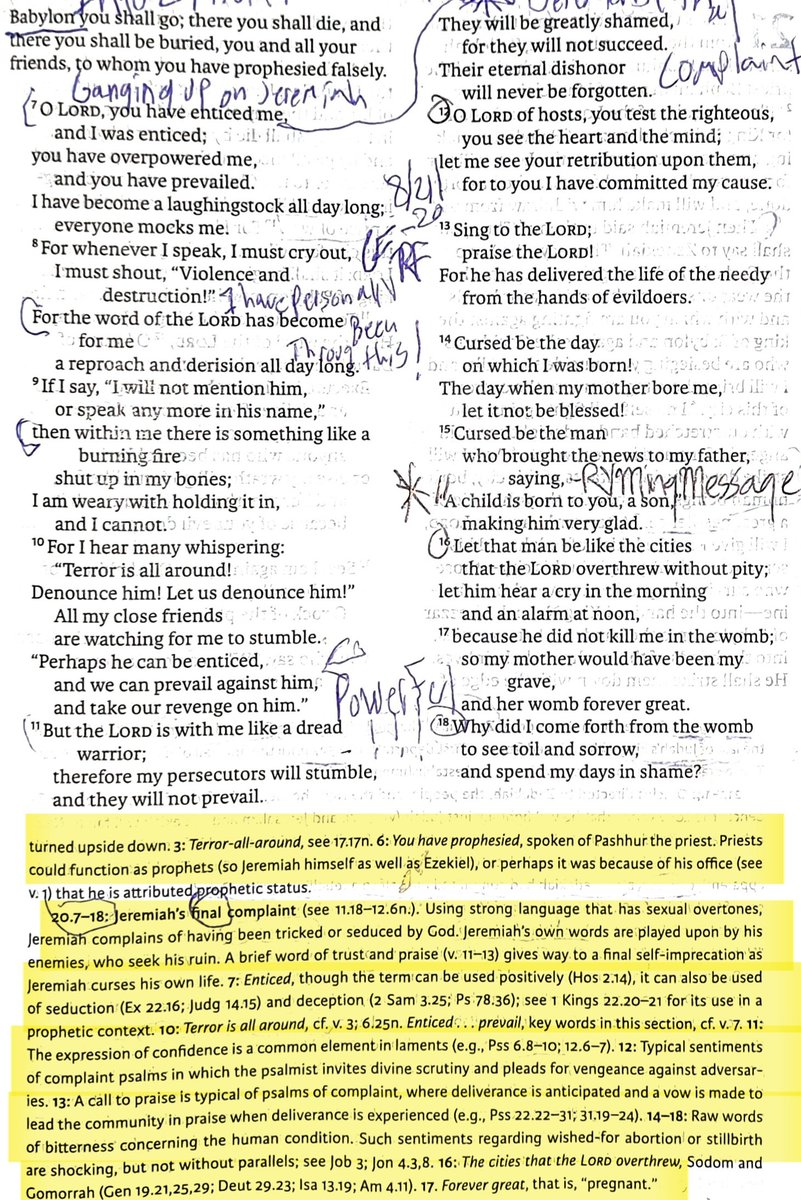 Babylon you shall go; there you shall die, and
there you shall be buried, you and all your
friends, to whom you have prophesied falsely.
Ganging Up on Jeremiah
7 O LORD, you have enticed me,
and I was enticed;
you have overpowered me,
and you have prevailed.
I have become a laughingstock all day long;
everyone mocks me.
8/21/
20
8 For whenever I speak, I must cry out,
RF
I must shout, “Violence and
destruction!”
I have Personally
Been
Through this!
For the word of the LORD has become
for me
a reproach and derision all day long.
9 If I say, “I will not mention him,
or speak any more in his name,”
then within me there is something like a
burning fire
shut up in my bones;
I am weary with holding it in,
and I cannot.
10 For I hear many whispering:
“Terror is all around!
Denounce him! Let us denounce him!”
All my close friends
are watching for me to stumble.
“Perhaps he can be enticed,
and we can prevail against him,
and take our revenge on him.”
Powerful
11 But the LORD is with me like a dread
warrior;
therefore my persecutors will stumble,
and they will not prevail.
They will be greatly shamed,
for they will not succeed.
Complaint
Their eternal dishonor
will never be forgotten.
12 O LORD of hosts, you test the righteous,
you see the heart and the mind;
let me see your retribution upon them,
for to you I have committed my cause.
13 Sing to the LORD;
praise the LORD!
For he has delivered the life of the needy
from the hands of evildoers.
14 Cursed be the day
on which I was born!
The day when my mother bore me,
let it not be blessed!
15 Cursed be the man
who brought the news to my father,
saying,
Message
“A child is born to you, a son,”
making him very glad.
16 Let that man be like the cities
that the LORD overthrew without pity;
let him hear a cry in the morning
and an alarm at noon,
17 because he did not kill me in the womb;
so my mother would have been my
grave,
and her womb forever great.
18 Why did I come forth from the womb
to see toil and sorrow,
and spend my days in shame?
turned upside down. 3: Terror-all-around, see 17.17n. 6: You have prophesied, spoken of Pashhur the priest. Priests
could function as prophets (so Jeremiah himself as well as Ezekiel), or perhaps it was because of his office (see
v. 1) that he is attributed prophetic status.
20.7–18: Jeremiah’s final complaint (see 11.18–12.6n.). Using strong language that has sexual overtones,
Jeremiah complains of having been tricked or seduced by God. Jeremiah’s own words are played upon by his
enemies, who seek his ruin. A brief word of trust and praise (v. 11–13) gives way to a final self-imprecation as
Jeremiah curses his own life. 7: Enticed, though the term can be used positively (Hos 2.14), it can also be used
of seduction (Ex 22.16; Judg 14.15) and deception (2 Sam 3.25; Ps 78.36); see 1 Kings 22.20–21 for its use in a
prophetic context. 10: Terror is all around, cf. v. 3; 6.25n. Enticed . . . prevail, key words in this section, cf. v. 7. 11:
The expression of confidence is a common element in laments (e.g., Pss 6.8–10; 12.6–7). 12: Typical sentiments
of complaint psalms in which the psalmist invites divine scrutiny and pleads for vengeance against adversar-
ies. 13: A call to praise is typical of psalms of complaint, where deliverance is anticipated and a vow is made to
lead the community in praise when deliverance is experienced (e.g., Pss 22.22–31; 31.19–24). 14–18: Raw words
of bitterness concerning the human condition. Such sentiments regarding wished-for abortion or stillbirth
are shocking, but not without parallels; see Job 3; Jon 4.3,8. 16: The cities that the LORD overthrew, Sodom and
Gomorrah (Gen 19.21,25,29; Deut 29.23; Isa 13.19; Am 4.11). 17. Forever great, that is, “pregnant.”